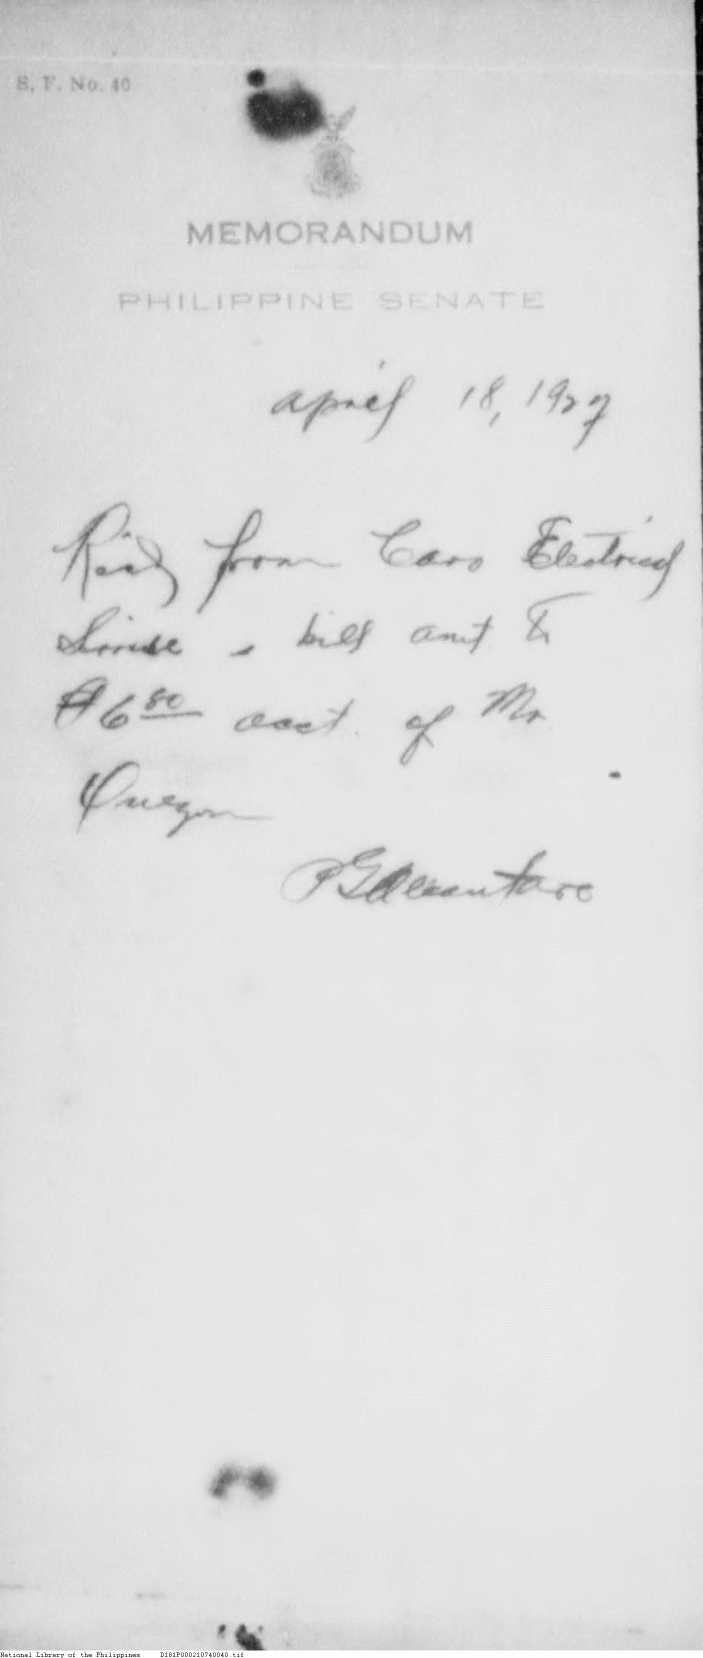 S. F. No. 40
MEMORANDUM
PHILIPPINE SENATE
April 18, 1927
Recd from Caro Electrical
Service a bill amt to
₱6 80 acct. of Mr
Quezon
National Library of the Philippines D181P000210740040.tif